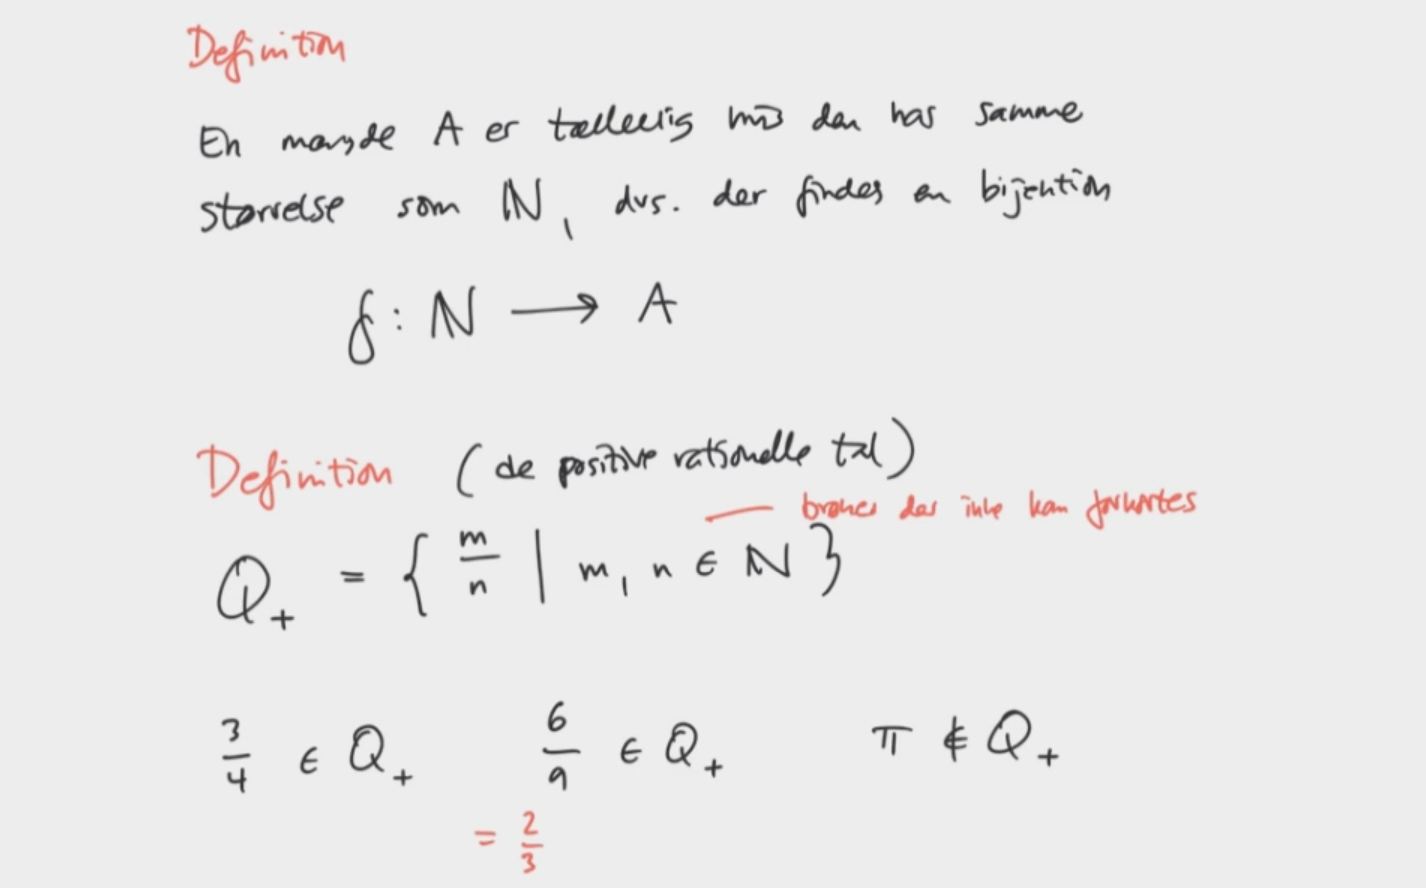 Definition
En mængde A er tællelig hvis den har samme
størrelse som ℕ, dvs. der findes en bijektion
f: ℕ ⟶ A
Definition (de positive rationelle tal)
brøker der ikke kan forkortes
ℚ₊ = { m/n | m, n ∈ ℕ }
3/4 ∈ ℚ₊ 6/9 ∈ ℚ₊ π ∉ ℚ₊
= 2/3